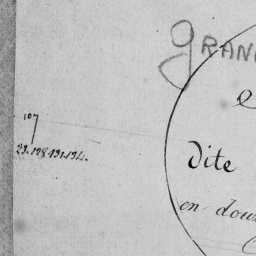 GRAN
107
23.128.131.132.
e
dite
en dou